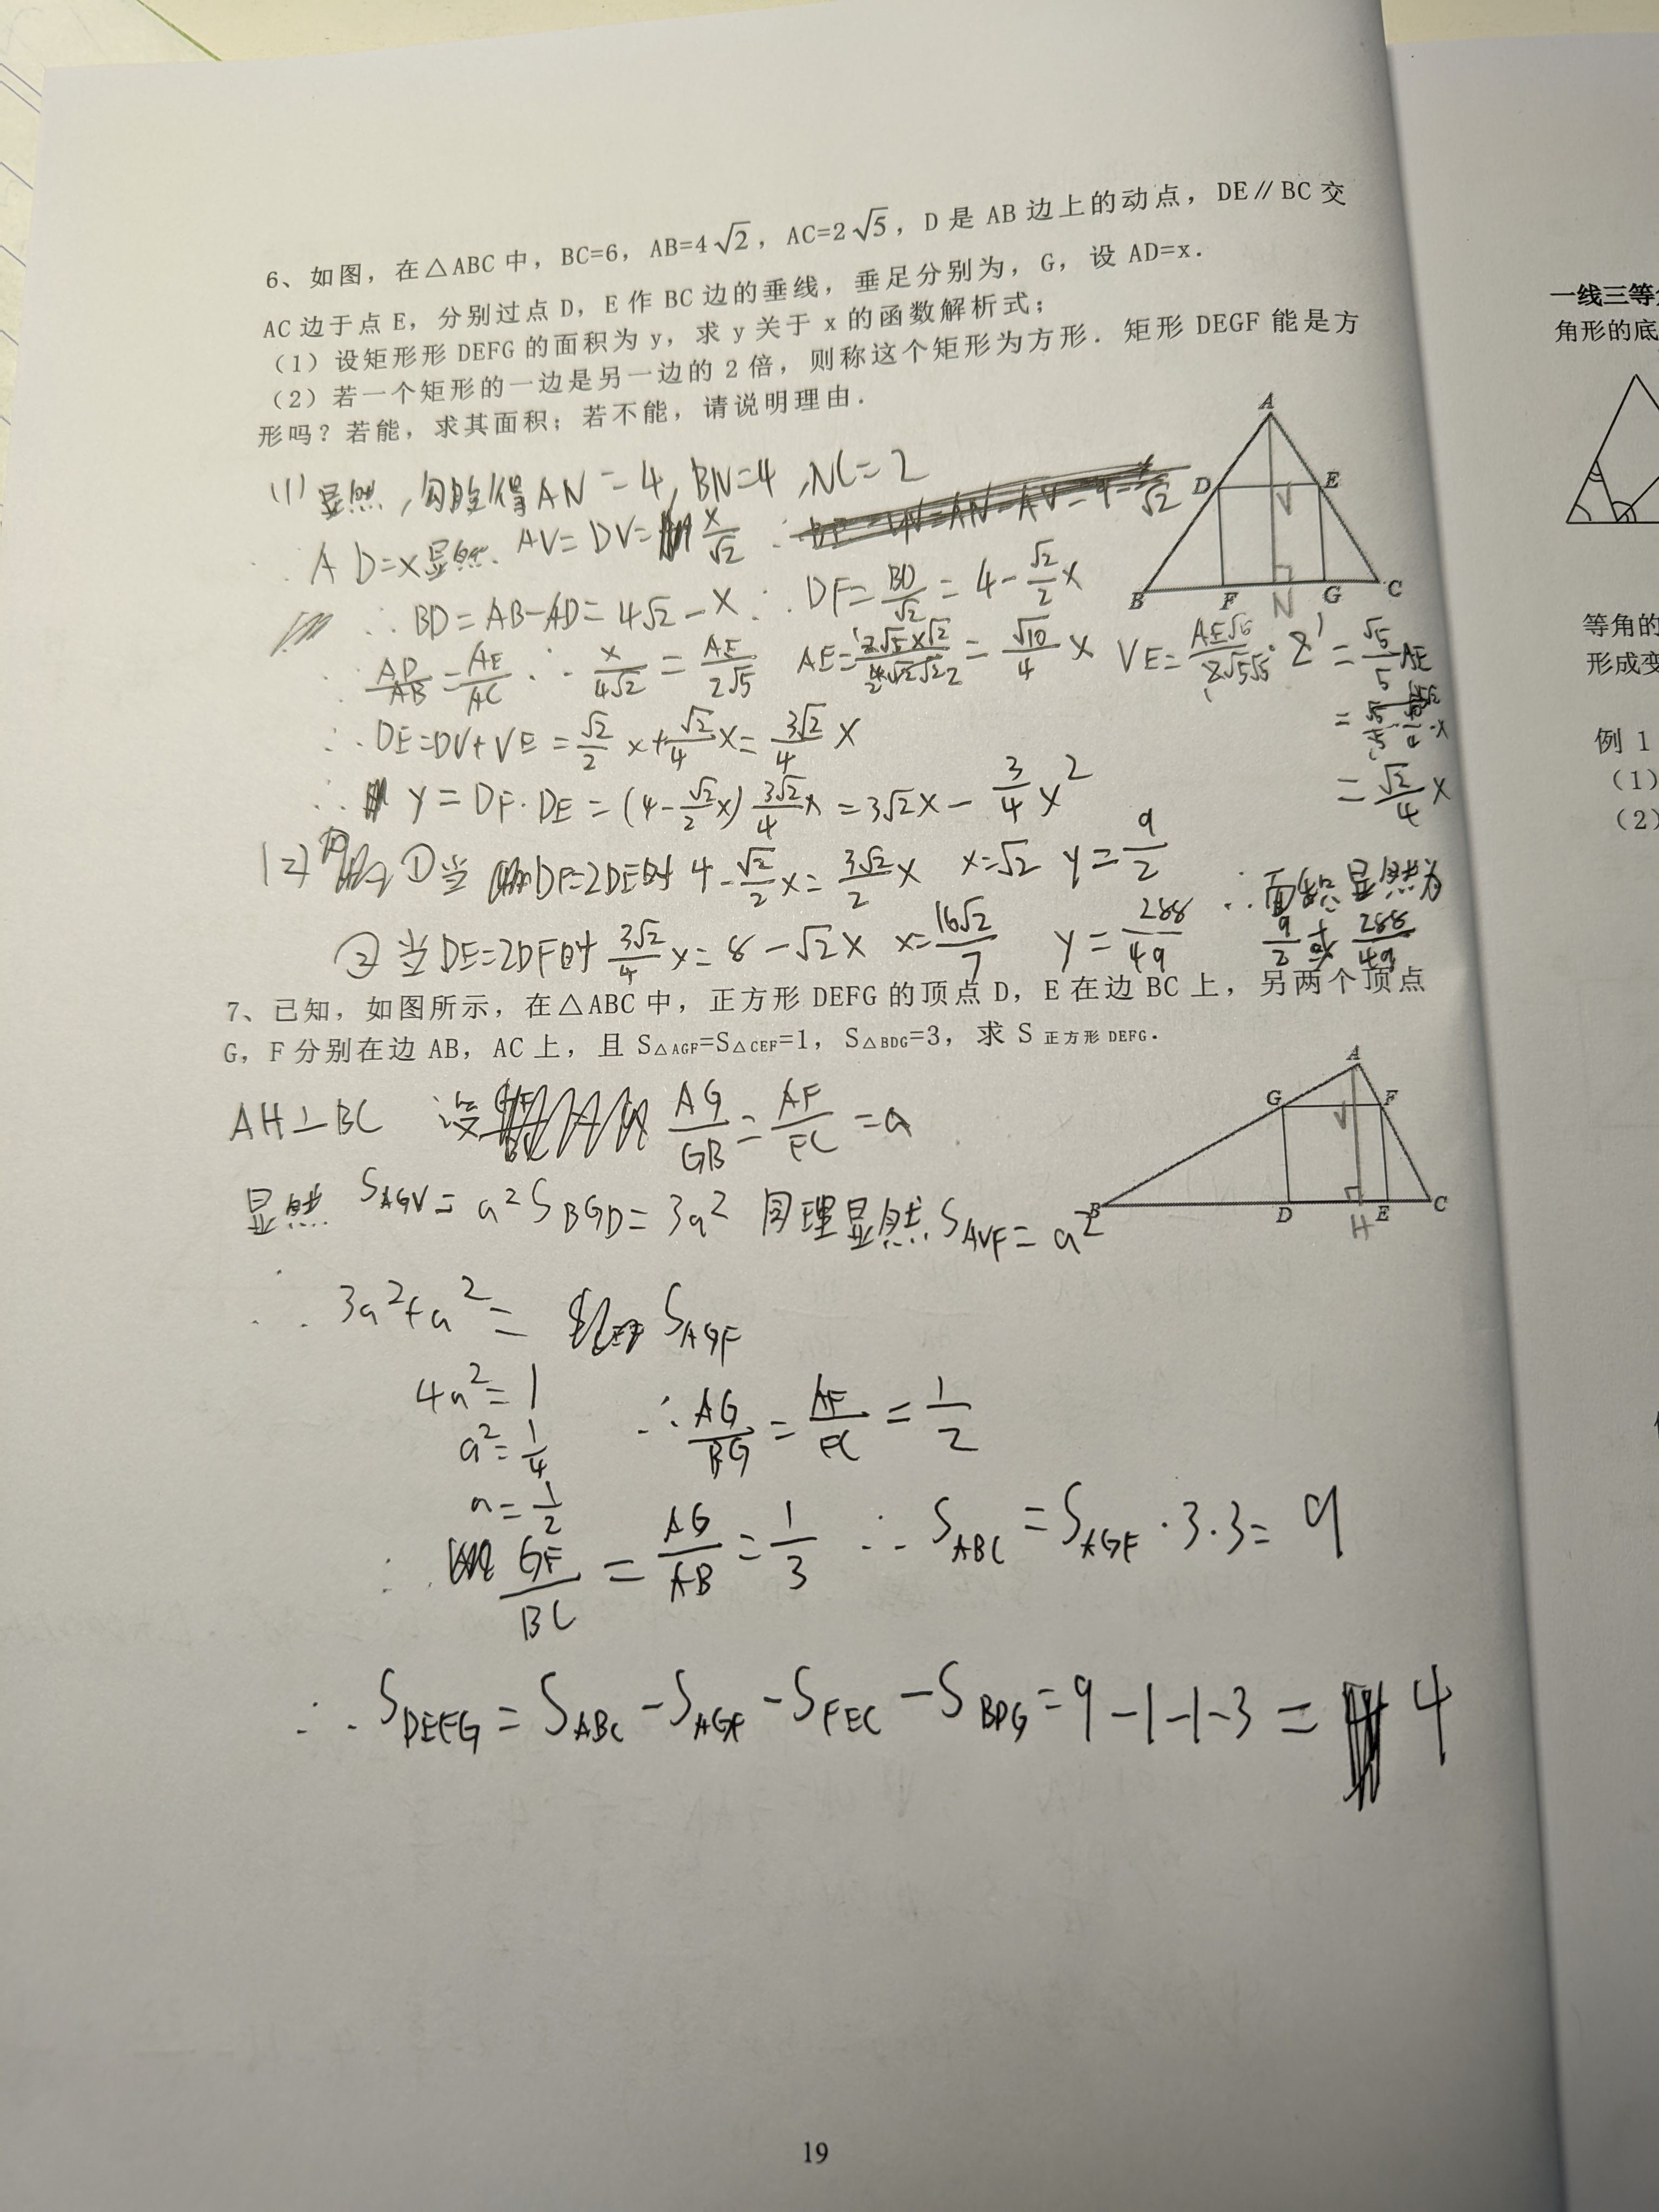 6、如图，在△ABC中，BC=6，AB=4√2，AC=2√5，D是AB边上的动点，DE∥BC交
AC边于点E，分别过点D，E作BC边的垂线，垂足分别为，G，设AD=x．
（1）设矩形形DEFG的面积为y，求y关于x的函数解析式；
（2）若一个矩形的一边是另一边的2倍，则称这个矩形为方形．矩形DEGF能是方
形吗？若能，求其面积；若不能，请说明理由．
A
D
V
E
B
F
N
G
C
(1) 显然，勾股得AN=4, BN=4, NC=2
∴ AD=x 显然 AV=DV=x/√2
∴ BD=AB-AD=4√2-x ∴ DF=BD/√2=4-√2/2x
∴ AD/AB=AE/AC ∴ x/4√2=AE/2√5 AE= =√10/4 x VE= =√5/5 AE
=√2/4 x
∴ DE=DV+VE=√2/2 x+√2/4 x=3√2/4 x
∴ y=DF·DE=(4-√2/2x)3√2/4x=3√2x-3/4x²
(2) ①当DF=2DE时 4-√2/2x=3√2/2x x=√2 y=9/2
②当DE=2DF时 3√2/4x=8-√2x x=16√2/7 y=288/49 ∴面积显然为
9/2或288/49
7、已知，如图所示，在△ABC中，正方形DEFG的顶点D，E在边BC上，另两个顶点
G，F分别在边AB，AC上，且S△AGF=S△CEF=1，S△BDG=3，求S正方形DEFG．
A
G
V
F
B
D
H
E
C
AH⊥BC 设 AG/GB=AF/FC=a
显然 S_AGV=a²S_BGD=3a² 同理显然S_AVF=a²
∴ 3a²+a²= S_AGF
4a²=1
a²=1/4 ∴ AG/BG=AF/FC=1/2
a=1/2
∴ GF/BC=AG/AB=1/3 ∴ S_ABC=S_AGF·3·3=9
∴ S_DEFG=S_ABC-S_AGF-S_FEC-S_BDG=9-1-1-3=4
19
一线三等
角形的底
等角的
形成变
例1
（1）
（2）